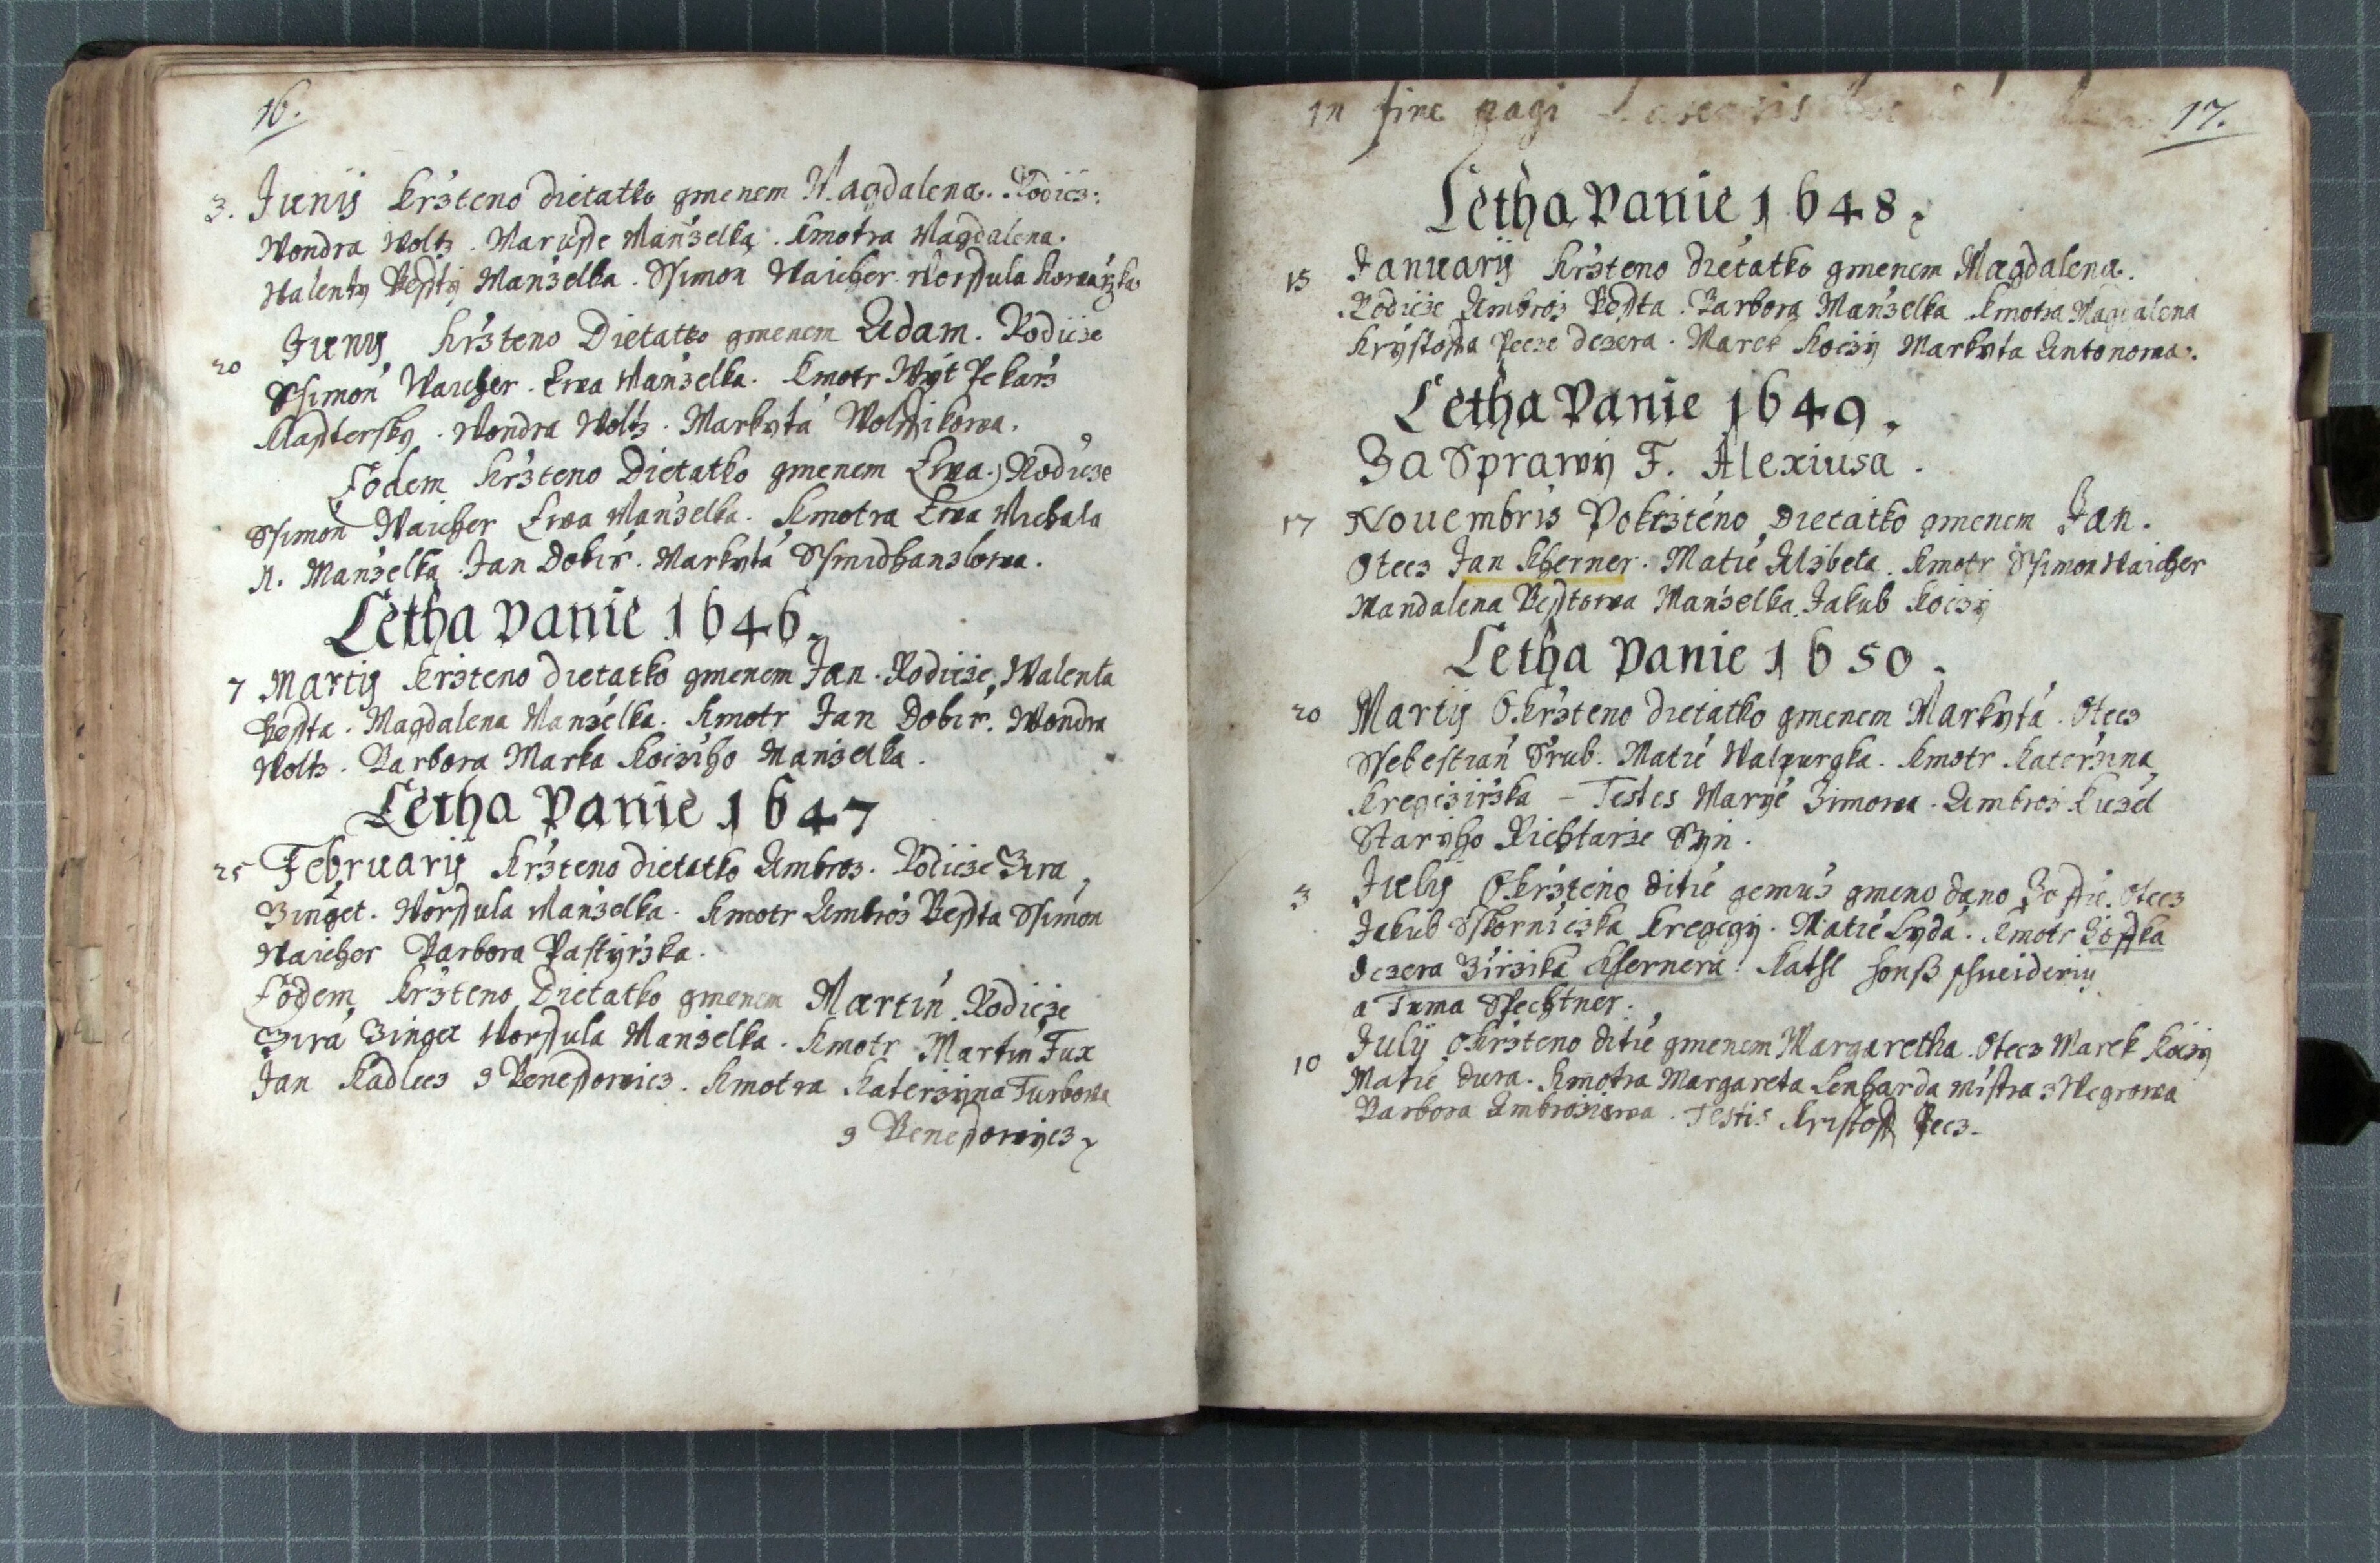 16.
3. Junij Krzteno dietatko gmenem Magdalena. Rodicz:
Wondra Woltz. Marusse Manzelka. Kmotra Magdalena.
Walenty Pessty Manzelka. Ssimon Waicher. Worssula
20 Juny Krzteno Dietatko gmenem Adam. Rodicze
Ssimon Waicher. Ewa Manzelka. Kmotr Wyt Pekarz
Klasstersky. Wondra Woltz. Markyta
Eodem Krzteno Dietatko gmenem Ewa. Rodicze
Ssimon Waicher Ewa Manzelka. Kmotra Ewa Michala
N. Manzelka. Jan Dobirˇ. Markyta Ssmidhanslowa.
Letha Panie 1646.
7 Martij Krzteno dietatko gmenem Jan. Rodicze, Walenta
Pessta. Magdalena Manzelka. Kmotr Jan Dobirˇ. Wondra
Woltz. Barbora Marka Kocziho Manzelka.
Letha Panie 1647
25 Februarij Krzteno dietatko Ambroz. Rodicze Zira
Zinget. Worssula Manzelka. Kmotr Ambroz Pessta Ssimon
Waicher Barbora Pastyrzka.
Eodem Krzteno Dietatko gmenem Martin. Rodicze
Zira Zinget Worssula Manzelka. Kmotr Martin Fux
Jan Kadlecz z Benessowicz. Kmotra Katerzyna Turkowa
z Benessowycz
in fine pagi
17.
Letha Panie 1648.
15 Januarij Krzteno dietatko gmenem Magdalena.
Rodicze Ambroz Pessta. Barbora Manzelka Kmotra Magdalena
Krystoffa Pecze dczera. Marek Koczy Markyta Antonowa.
Letha Panie 1649.
Za Sprawy F. Alexiusa.
17 Nouembris Pokrzteno Dietatko gmenem Jan.
Otecz Jan Kherner. Matie Alzbeta. Kmotr Ssimon Waicher
Mandalena Pesstowa Manzelka. Jakub Koczy
Letha Panie 1650.
20 Martij Okrzteno dietatko gmenem Markyta. Otecz
Ssebestian Srub. Matie Walpurgka. Kmotr Katerzina
Kregczirzka - Testes Marye Zimowa. Ambroz Kuzel
Staryho Richtarze Syn.
3 July Okrzteno ditie gemuz gmeno dano Zoffie. Otecz
Jakub Sskorniczka Kregczy. Matie Lyda. Kmotr Zoffka
dczera Zirzika Khernera. Kathl honß
a Tuma Spechtner.
10 July Okrzteno ditie gmenem Margaretha. Otecz Marek Koczy
Matie dura. Kmotra Margareta Lenharda mistra z Wegrowa
Barbora Ambrozowa. Testis Kristoff Pecz.